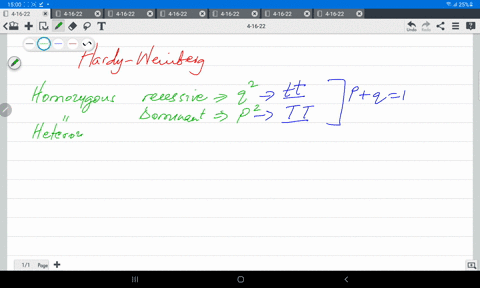 15:00 25%
4-16-22 4-16-22 4-16-22 4-16-22 4-16-22 4-16-22
4-16-22 Undo Redo
Hardy-Weinberg
Homozygous recessive ⇒ q² → tt
" Dominant ⇒ p² → TT ] p+q=1
Heteroz
1/1 Page +